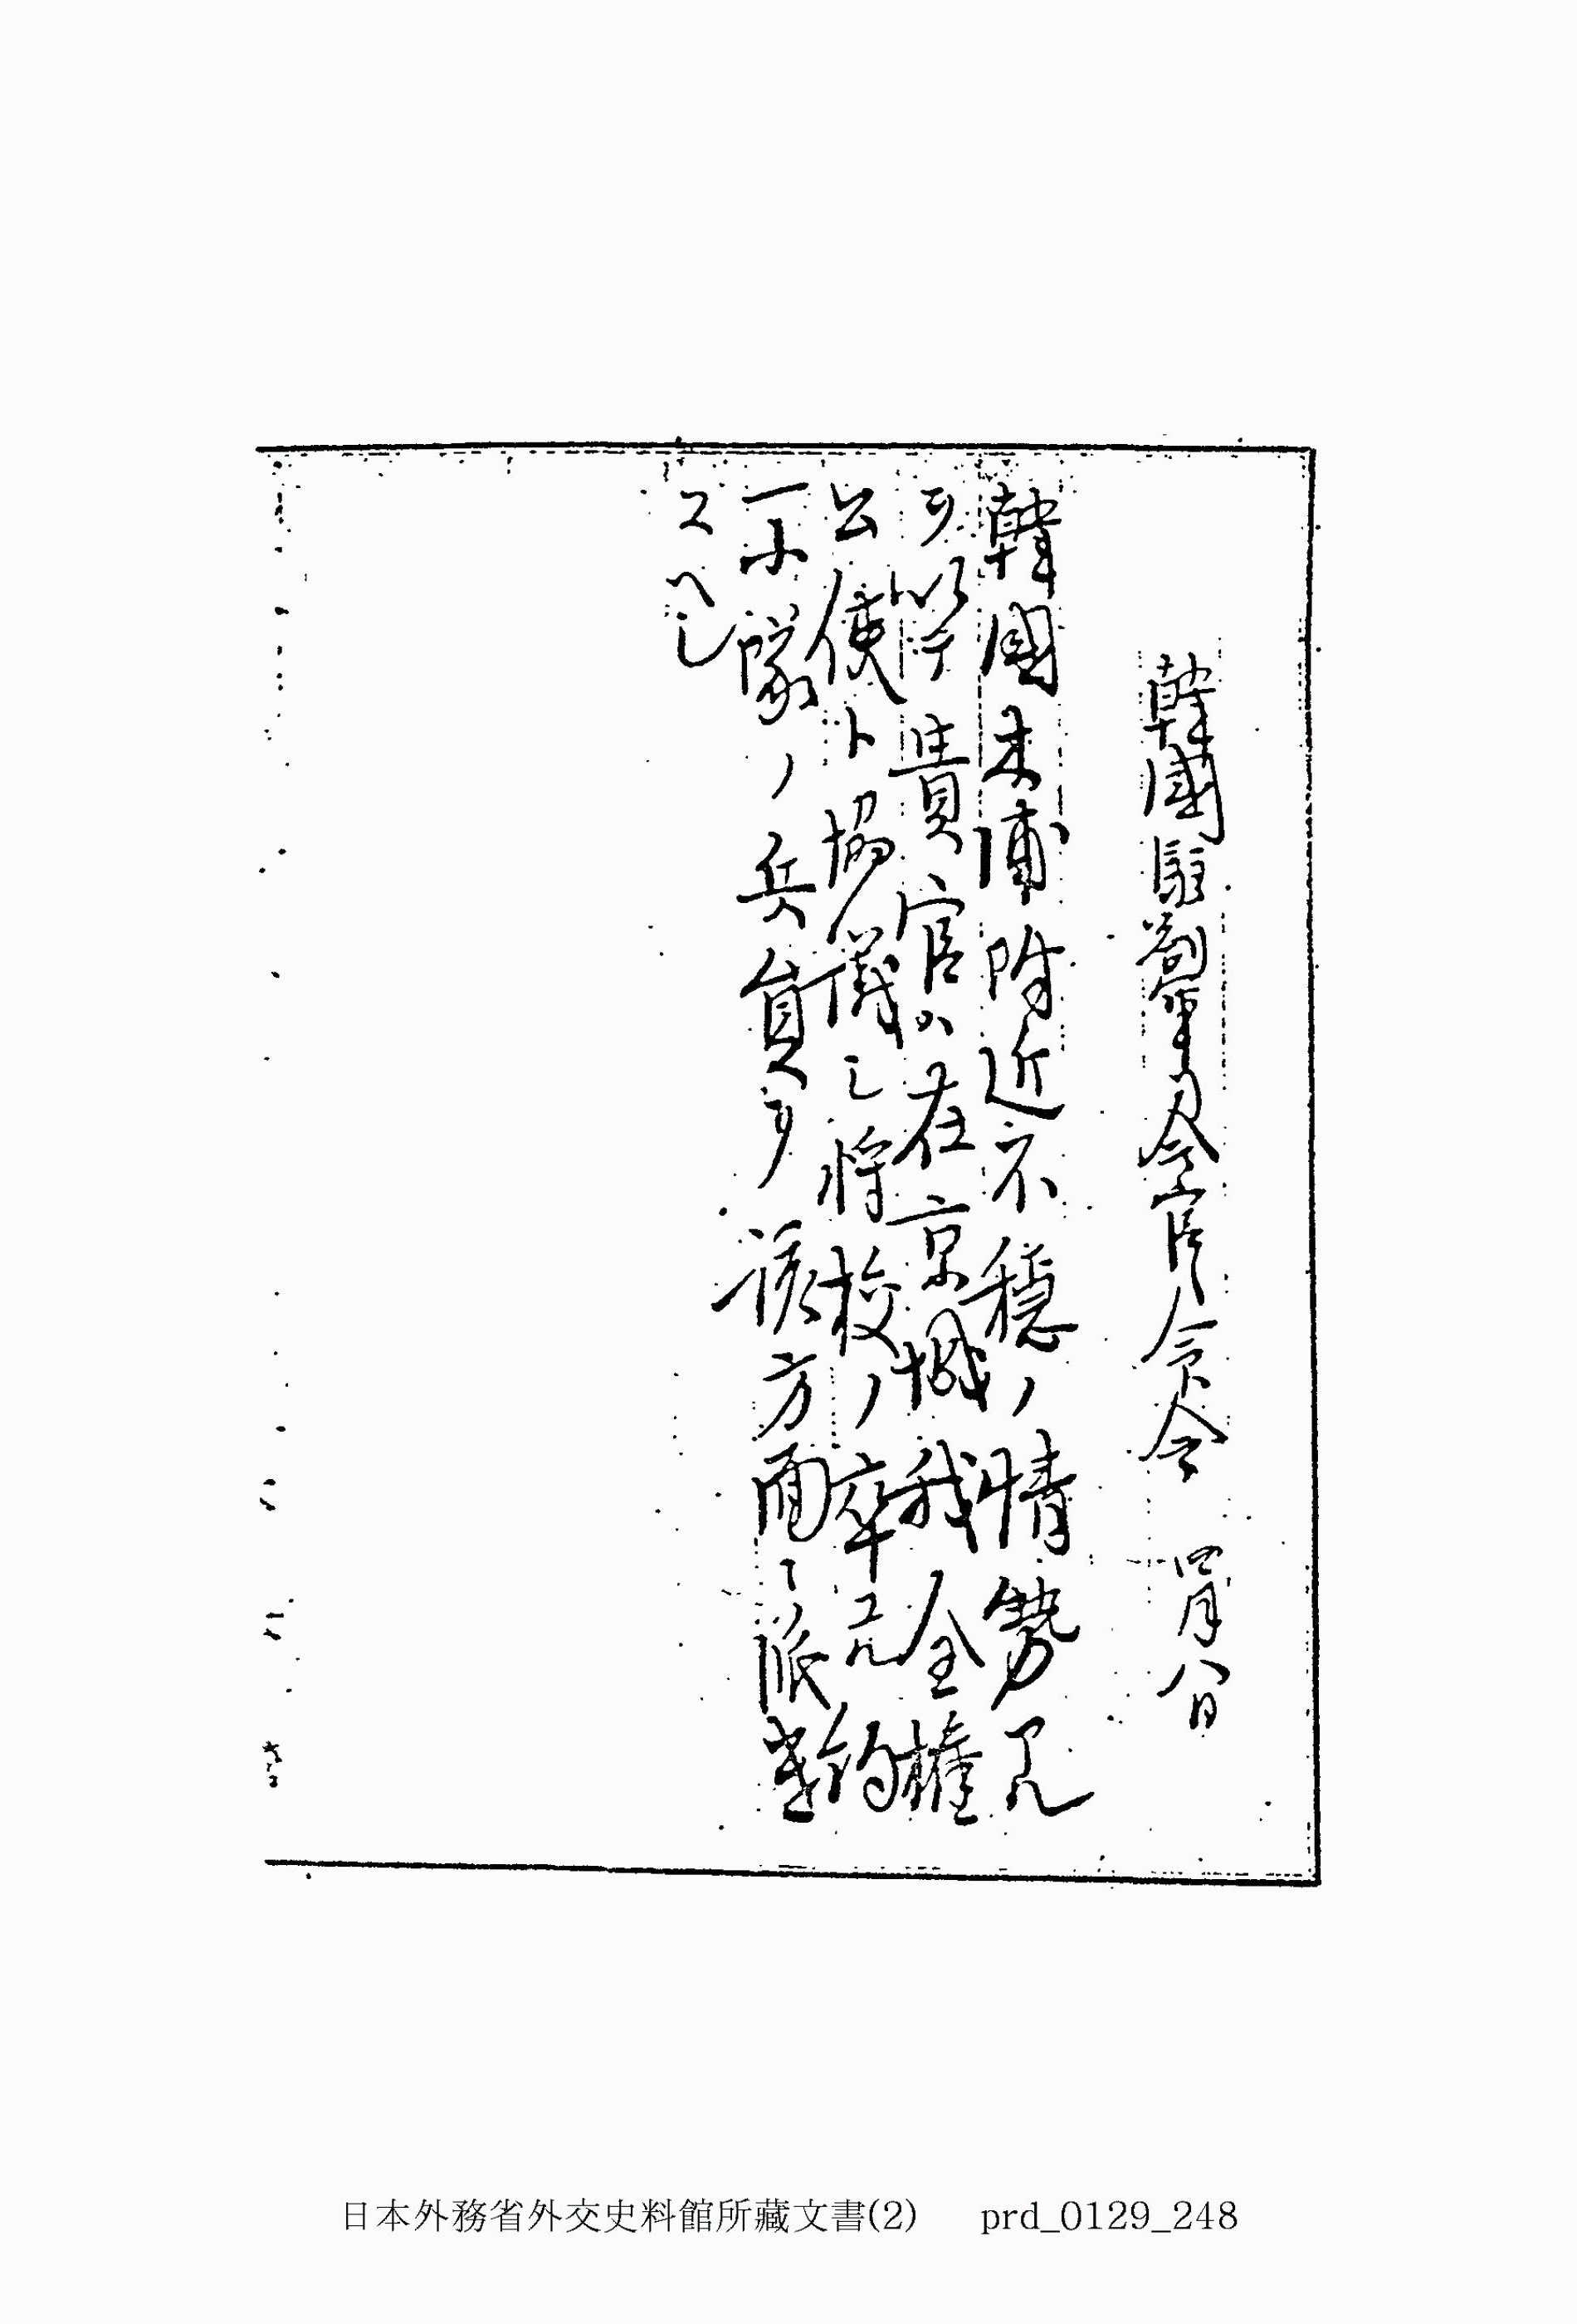 韓國駐劄軍司令官ヘ命令 四月八日
韓國木浦附近不穩ノ情勢アル
ヲ以テ貴官ハ在京城我全權
公使ト協儀シ將校ノ率ユル約
一小隊ノ兵員ヲ該方面ニ派遣
スヘシ
日本外務省外交史料館所藏文書(2) prd_0129_248